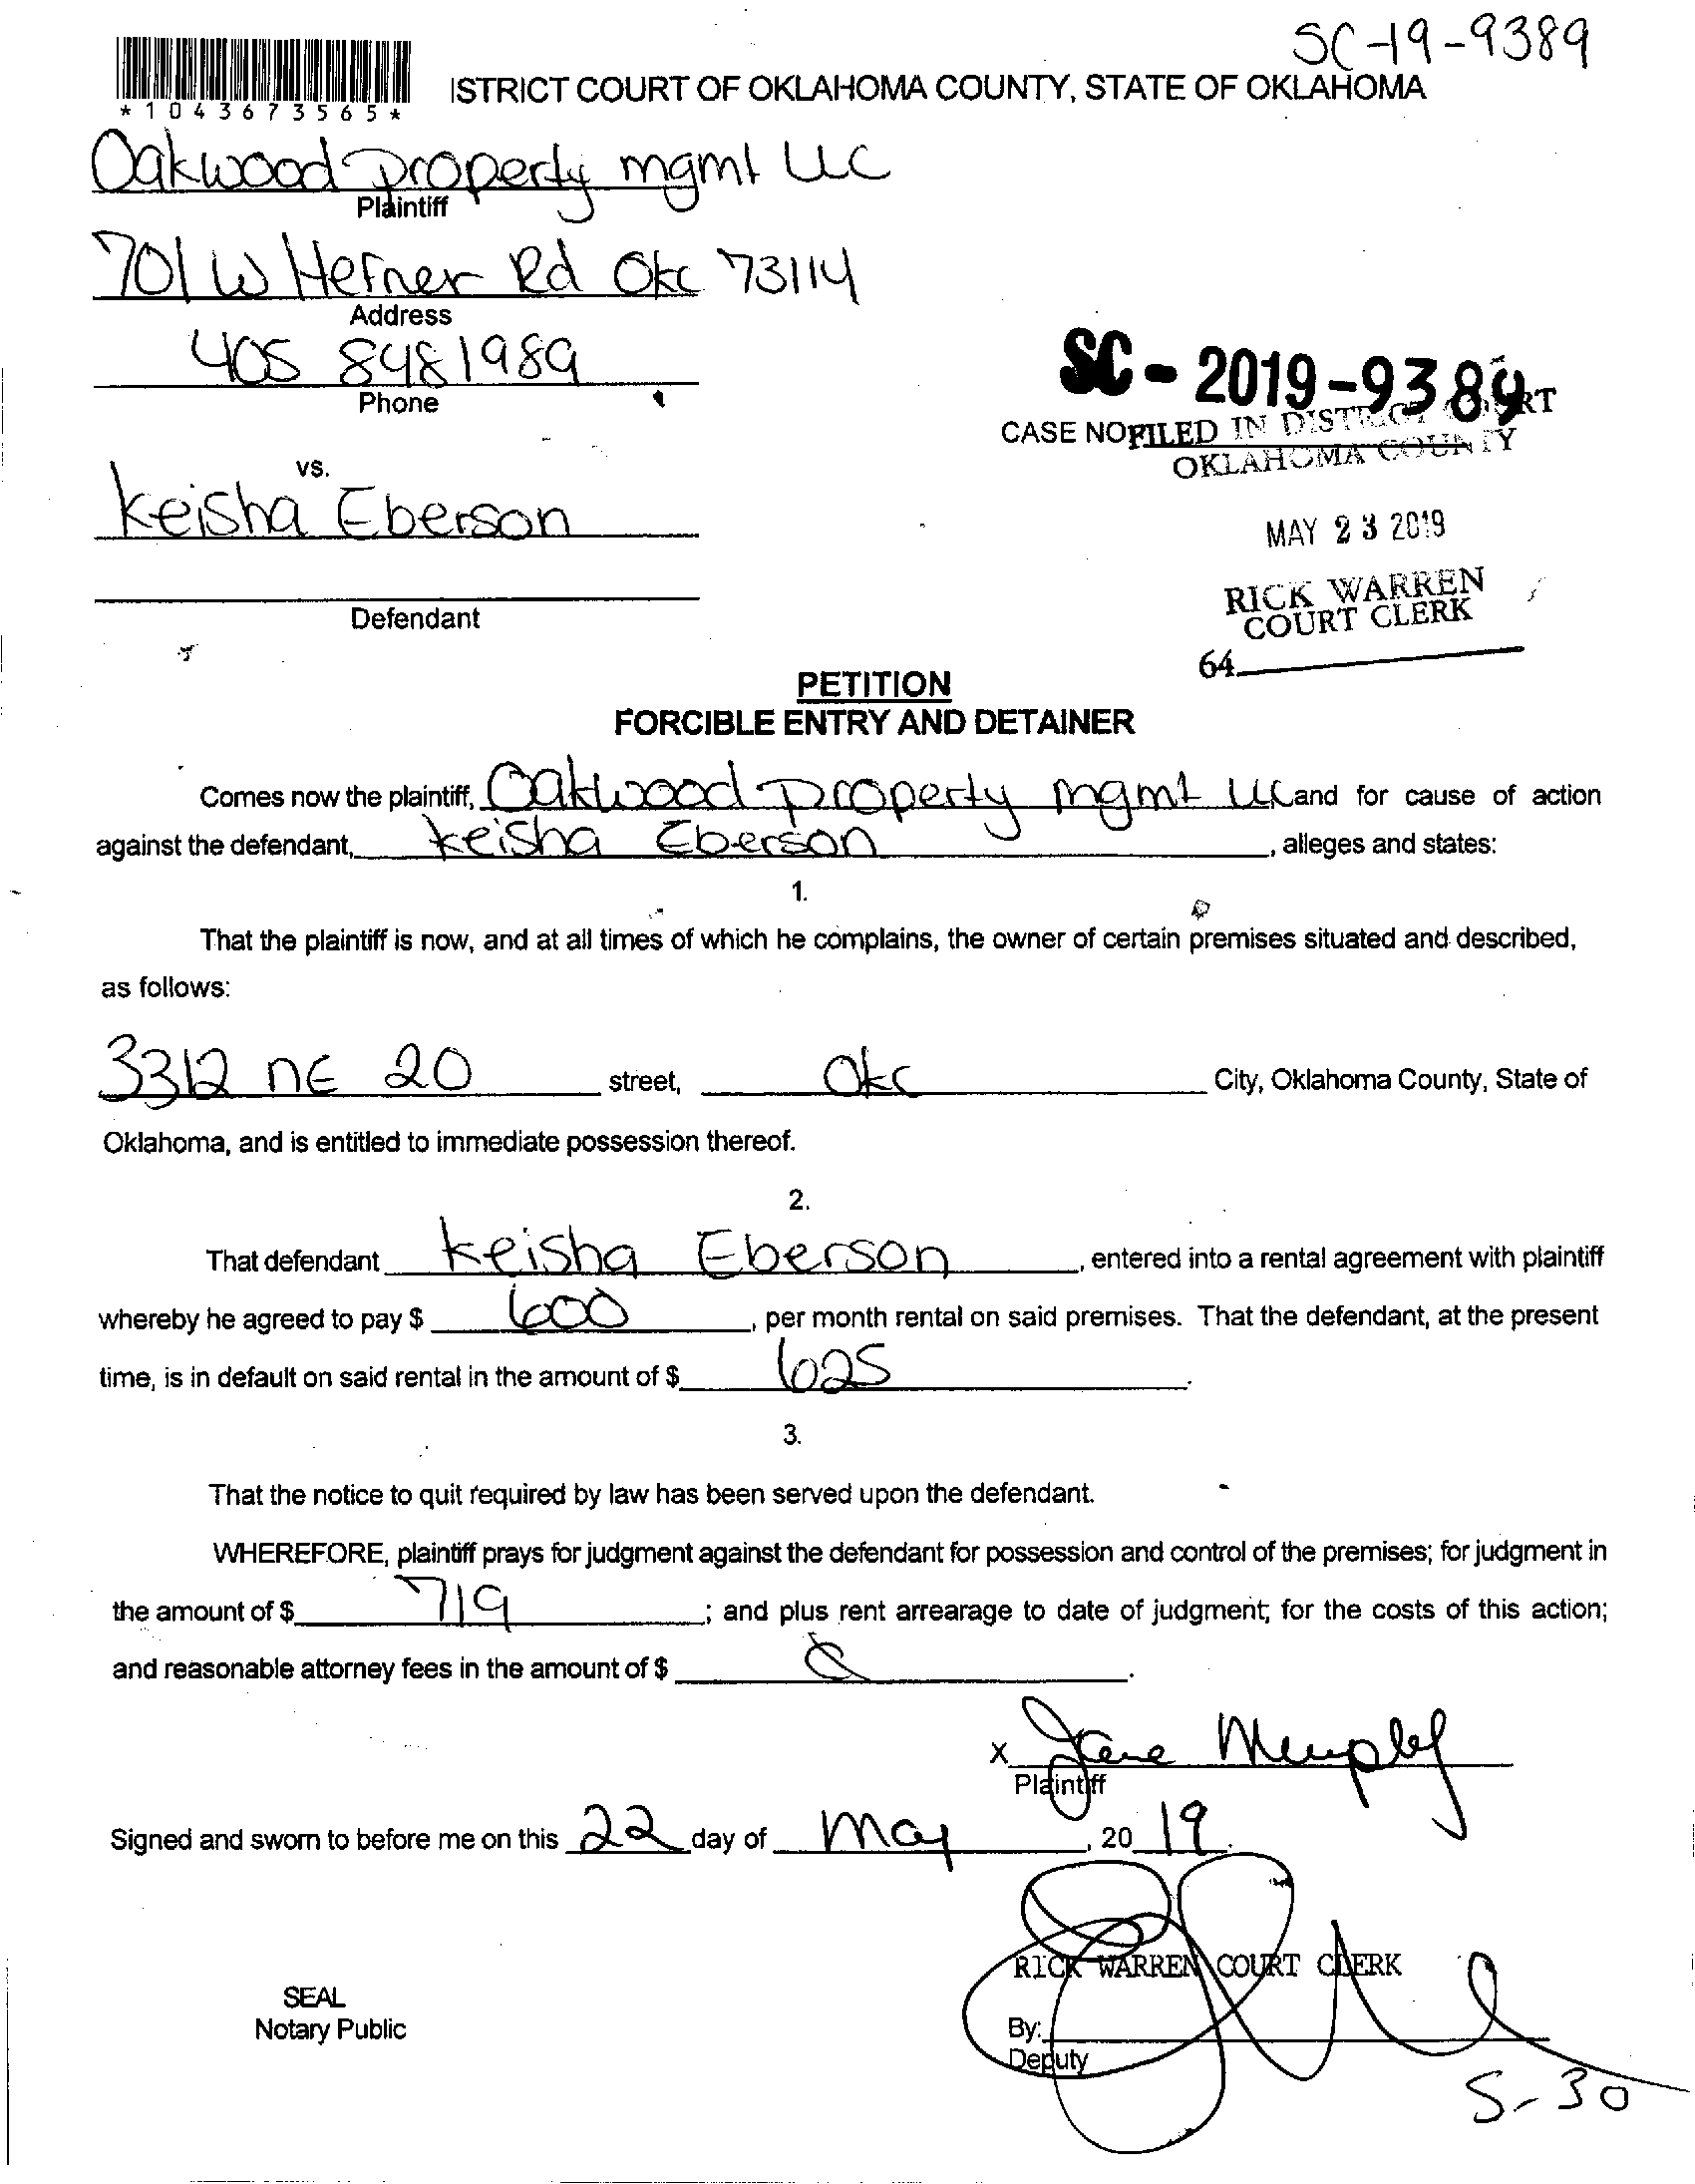 SC-19-9389
*1043673565*
ISTRICT COURT OF OKLAHOMA COUNTY, STATE OF OKLAHOMA
Oakwood property mgmt LLC
Plaintiff
701 W Hefner Rd Okc 73114
Address
405 848 1989
Phone
SC - 2019 - 9389
CASE NO
FILED IN DISTRICT COURT
OKLAHOMA COUNTY
vs.
keisha Eberson
MAY 23 2019
RICK WARREN
COURT CLERK
Defendant
64
PETITION
FORCIBLE ENTRY AND DETAINER
Comes now the plaintiff, Oakwood property mgmt LLC and for cause of action
against the defendant, keisha Eberson, alleges and states:
1.
That the plaintiff is now, and at all times of which he complains, the owner of certain premises situated and described,
as follows:
3312 NE 20 street, Okc City, Oklahoma County, State of
Oklahoma, and is entitled to immediate possession thereof.
2.
That defendant keisha Eberson, entered into a rental agreement with plaintiff
whereby he agreed to pay $ 600, per month rental on said premises. That the defendant, at the present
time, is in default on said rental in the amount of $ 625.
3.
That the notice to quit required by law has been served upon the defendant.
WHEREFORE, plaintiff prays for judgment against the defendant for possession and control of the premises; for judgment in
the amount of $ 719; and plus rent arrearage to date of judgment; for the costs of this action;
and reasonable attorney fees in the amount of $ .
x Jane Murphy
Plaintiff
Signed and sworn to before me on this 22 day of May, 20 19.
RICK WARREN COURT CLERK
SEAL
Notary Public
By:
Deputy
5-30